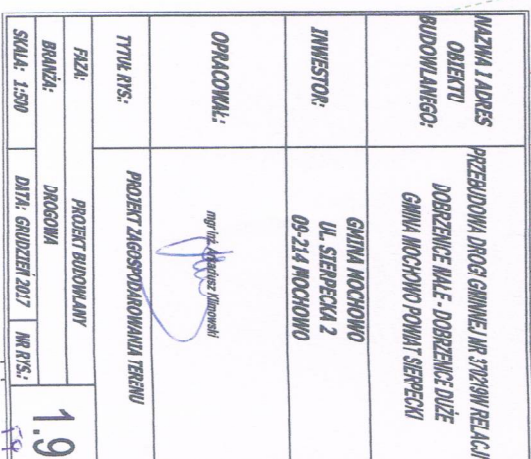 NAZWA I ADRES
OBIEKTU
BUDOWLANEGO:
PRZEBUDOWA DROGI GMINNEJ NR 370219W RELACJI
DOBRZENICE MAŁE - DOBRZENICE DUŻE
GMINA MOCHOWO POWIAT SIERPECKI
INWESTOR:
GMINA MOCHOWO
UL. SIERPECKA 2
09-214 MOCHOWO
OPRACOWAŁ:
mgr inż. Klinowski
TYTUŁ RYS.:
PROJEKT ZAGOSPODAROWANIA TERENU
FAZA:
PROJEKT BUDOWLANY
BRANŻA:
DROGOWA
SKALA: 1:500
DATA: GRUDZIEŃ 2017
NR RYS.:
1.9